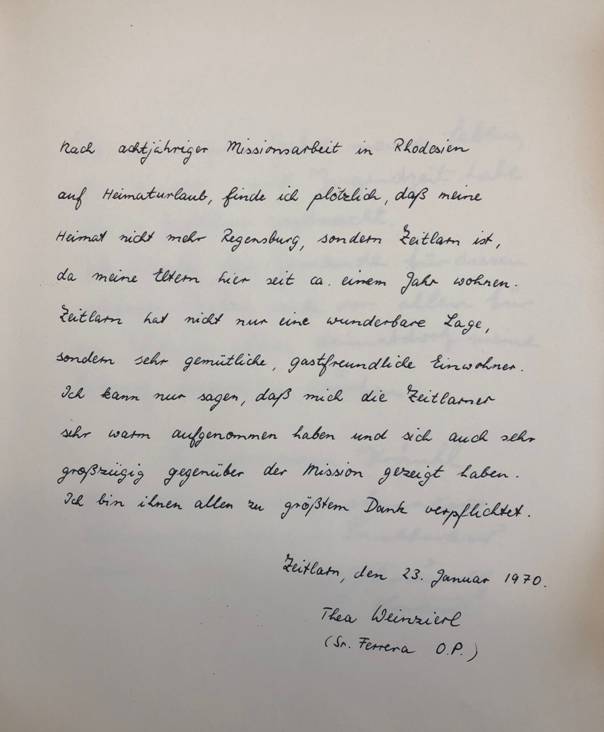 Nach achtjähriger Missionsarbeit in Rhodesien
auf Heimaturlaub, finde ich plötzlich, daß meine
Heimat nicht mehr Regensburg, sondern Zeitlarn ist,
da meine Eltern hier seit ca. einem Jahr wohnen.
Zeitlarn hat nicht nur eine wunderbare Lage,
sondern sehr gemütliche, gastfreundliche Einwohner.
Ich kann nur sagen, daß mich die Zeitlarner
sehr warm aufgenommen haben und sich auch sehr
großzügig gegenüber der Mission gezeigt haben.
Ich bin ihnen allen zu größtem Dank verpflichtet.
Zeitlarn, den 23. Januar 1970.
Thea Weinzierl
(Sr. Ferrera O.P.)